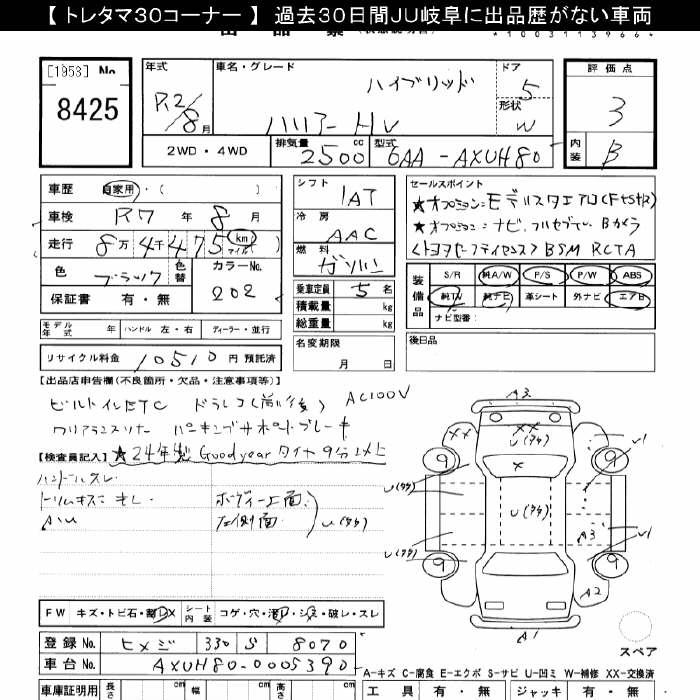 【 トレタマ30コーナー 】 過去30日間JU岐阜に出品歴がない車両
*1003113966*
[1953] No.
8425
年式
R2/8月
車名・グレード
ハイブリッド
ハリアー HV
ドア
5
形状
W
評価点
3
内装
B
2WD・4WD
排気量
2500 cc
型式
6AA-AXUH80
車歴 自家用・( )
車検 R7 年 8 月
走行 8万4千475 km マイル
色 ブラック 色替 カラーNo. 202
保証書 有・無
シフト
1AT
冷房
AAC
燃料
ガソリン
乗車定員 5 名
積載量 kg
総重量 kg
セールスポイント
★オプション:モデリスタエアロ(F+S+R)
★オプション:ナビ、フルセグTV、Bカメラ
<トヨタセーフティセンス> BSM RCTA
装備品
S/R 純A/W P/S P/W ABS
純TV 純ナビ 革シート 外ナビ エアB
ナビ型番:
モデル年式 年 ハンドル 左・右 ディーラー・並行
名変期限
月 日
後日品
リサイクル料金 10510 円 預託済
【出品店申告欄(不良箇所・欠品・注意事項等)】
ビルトインETC ドラレコ(前/後) AC100V
クリアランスソナー パーキングサポートブレーキ
【検査員記入】 ★24年製 Goodyear タイヤ9分以上
ハンドルスレ
トリムキズ
ボディー上面
左側面
U(タタ)
A3
XX
XX
U(タタ)
U1
9
9
X
U(タタ)
U(タタ)
U(タタ)
A3
U1
9
9
A2
A1
スペア
FW キズ・トビ石・ シート内装 コゲ・穴・ ・シミ・破レ・スレ
登録 No. ヒメジ 330 S 8070
車台 No. AXUH80-0005390
A-キズ C-腐食 E-エクボ S-サビ U-凹ミ W-補修 XX-交換済
車庫証明用 長さ cm 幅 cm 高
工具 有・無 ジャッキ 有・無